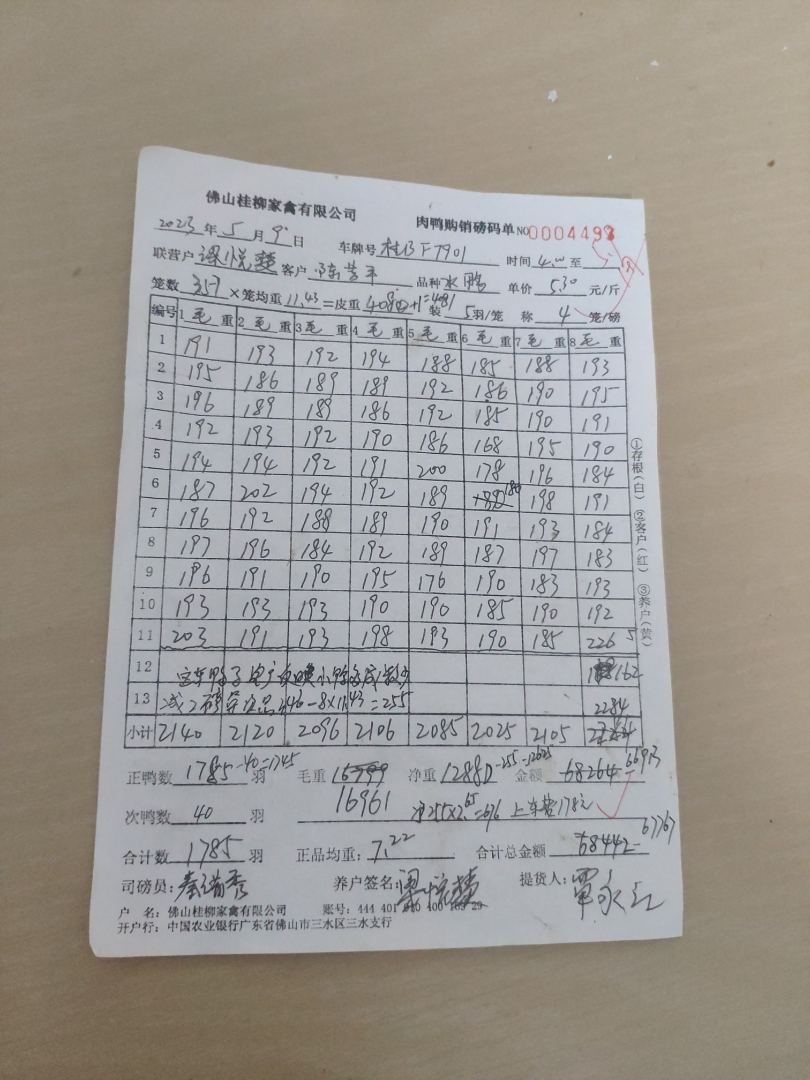 佛山桂柳家禽有限公司
肉鸭购销磅码单 NO 0004498
2023 年 5 月 9 日 车牌号 桂B F7901 时间 4.00 至
联营户 梁悦楚 客户 陈 品种 水鸭 单价 5.30 元/斤
笼数 357 ×笼均重 11.43 =皮重 4080+1=4081 装 5 羽/笼 称 4 笼/磅
编号 1 毛 重 2 毛 重 3 毛 重 4 毛 重 5 毛 重 6 毛 重 7 毛 重 8 毛 重
1 191 193 192 194 188 185 188 193
2 195 186 189 189 192 186 190 195
3 196 189 189 186 192 185 190 191
4 192 193 192 190 186 168 195 190
5 194 194 192 191 200 178 196 184
6 187 202 194 192 189 180 198 191
7 196 192 188 189 190 191 193 184
8 197 196 184 192 189 187 197 183
9 196 191 190 195 176 190 183 193
10 193 193 193 190 190 185 190 192
11 203 191 193 198 193 190 185 226 5
12 162
13 减2磅 -8×11.43=255 2284
小计 2140 2120 2096 2106 2085 2025 2105
正鸭数 1785-40=1745 羽 毛重 净重 12880-255=12625 金额 68264 66913
16961 净255×2.65=676 上车费178元
次鸭数 40 羽
合计数 1785 羽 正品均重: 7.22 合计总金额 68442 67767
司磅员: 秦 秀 养户签名: 梁悦楚 提货人: 覃永江
户 名: 佛山桂柳家禽有限公司 账号: 444 401 040 400 29
开户行: 中国农业银行广东省佛山市三水区三水支行
①存根(白) ②客户(红) ③养户(黄)